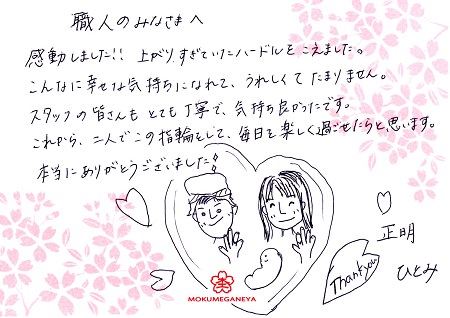 職人のみなさまへ
感動しました!! 上がりすぎていたハードルをこえました。
こんなに幸せな気持ちになれて、うれしくてたまりません。
スタッフの皆さんもとても丁寧で、気持ち良かったです。
これから、二人でこの指輪をして、毎日を楽しく過ごせたらと思います。
本当にありがとうございました
正明
ひとみ
Thank you
MOKUMEGANEYA